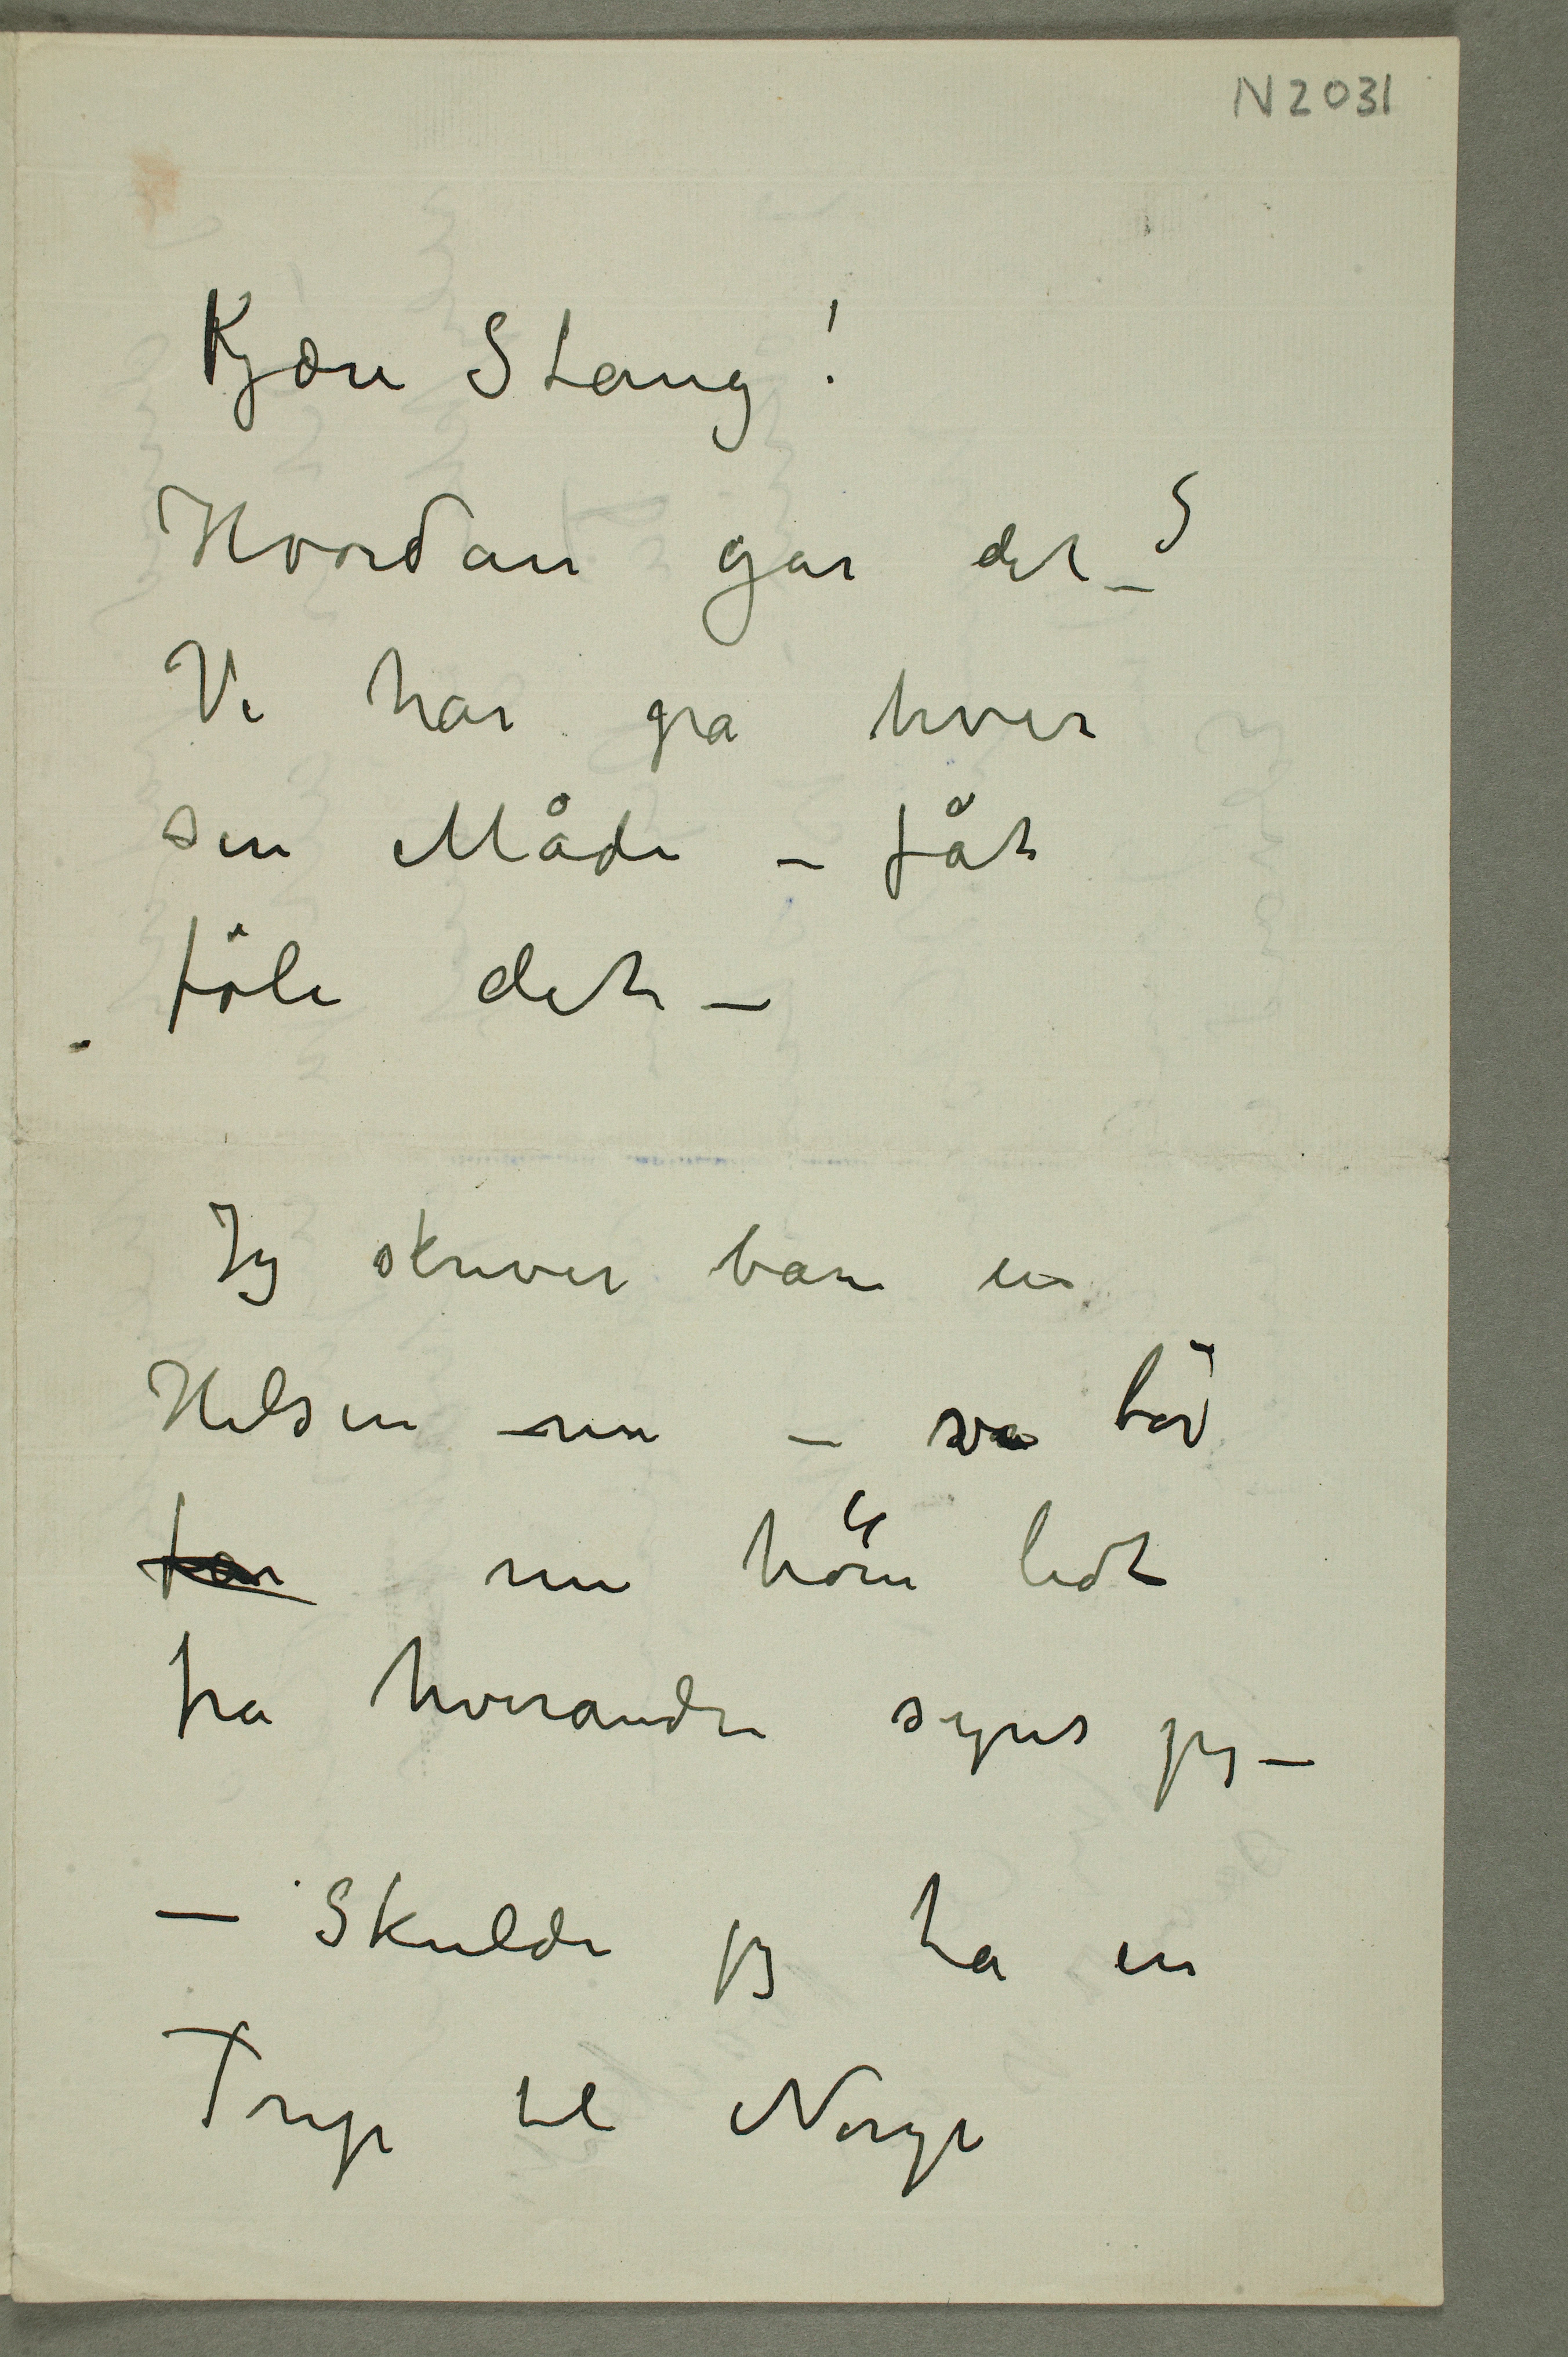 N 2031
Kjære Stang!
Hvordan går det –?
Vi har på hver
sin Måde – fåt
föle det –
Jeg skriver bare en
Hilsen nu – så bör
får nu höre lidt
fra hverandre synes jeg –
– Skulde jeg ta en
Trip til Norge